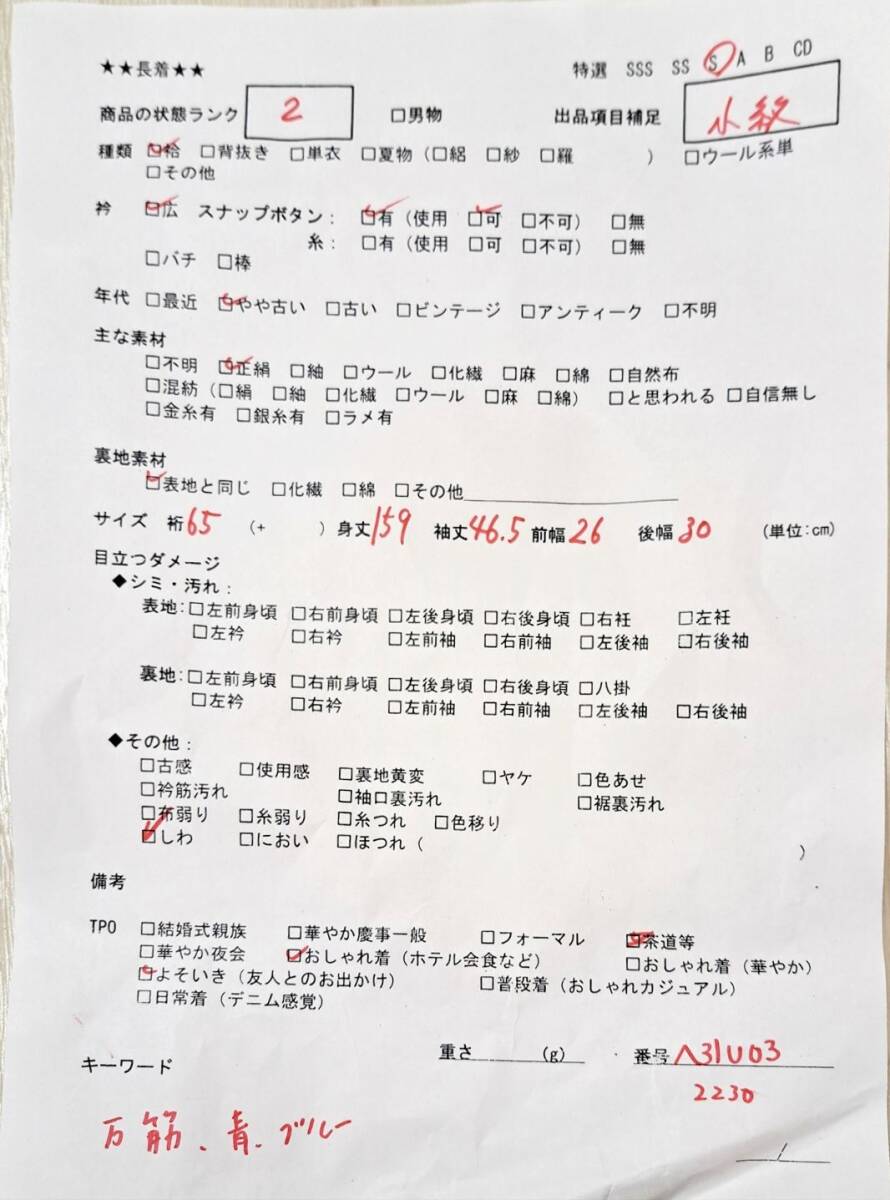 ★★長着★★ 特選 SSS SS S A B CD
商品の状態ランク 2 □男物 出品項目補足 小紋
種類 ☑袷 □背抜き □単衣 □夏物(□絽 □紗 □羅 ) □ウール系単
□その他
衿 ☑広 スナップボタン: ☑有(使用 ☑可 □不可) □無
糸:□有(使用 □可 □不可) □無
□バチ □棒
年代 □最近 ☑やや古い □古い □ビンテージ □アンティーク □不明
主な素材
□不明 ☑正絹 □紬 □ウール □化繊 □麻 □綿 □自然布
□混紡(□絹 □紬 □化繊 □ウール □麻 □綿) □と思われる □自信無し
□金糸有 □銀糸有 □ラメ有
裏地素材
☑表地と同じ □化繊 □綿 □その他
サイズ 裄65 (+ ) 身丈159 袖丈46.5 前幅26 後幅30 (単位:cm)
目立つダメージ
◆シミ・汚れ:
表地:□左前身頃 □右前身頃 □左後身頃 □右後身頃 □右衽 □左衽
□左衿 □右衿 □左前袖 □右前袖 □左後袖 □右後袖
裏地:□左前身頃 □右前身頃 □左後身頃 □右後身頃 □八掛
□左衿 □右衿 □左前袖 □右前袖 □左後袖 □右後袖
◆その他:
□古感 □使用感 □裏地黄変 □ヤケ □色あせ
□衿筋汚れ □袖口裏汚れ □裾裏汚れ
□布弱り □糸弱り □糸つれ □色移り
☑しわ □におい □ほつれ( )
備考
TPO □結婚式親族 □華やか慶事一般 □フォーマル ☑茶道等
□華やか夜会 ☑おしゃれ着(ホテル会食など) □おしゃれ着(華やか)
☑よそいき(友人とのお出かけ) □普段着(おしゃれカジュアル)
□日常着(デニム感覚)
重さ (g) 番号 A31U03
2230
キーワード
万筋、青、ブルー